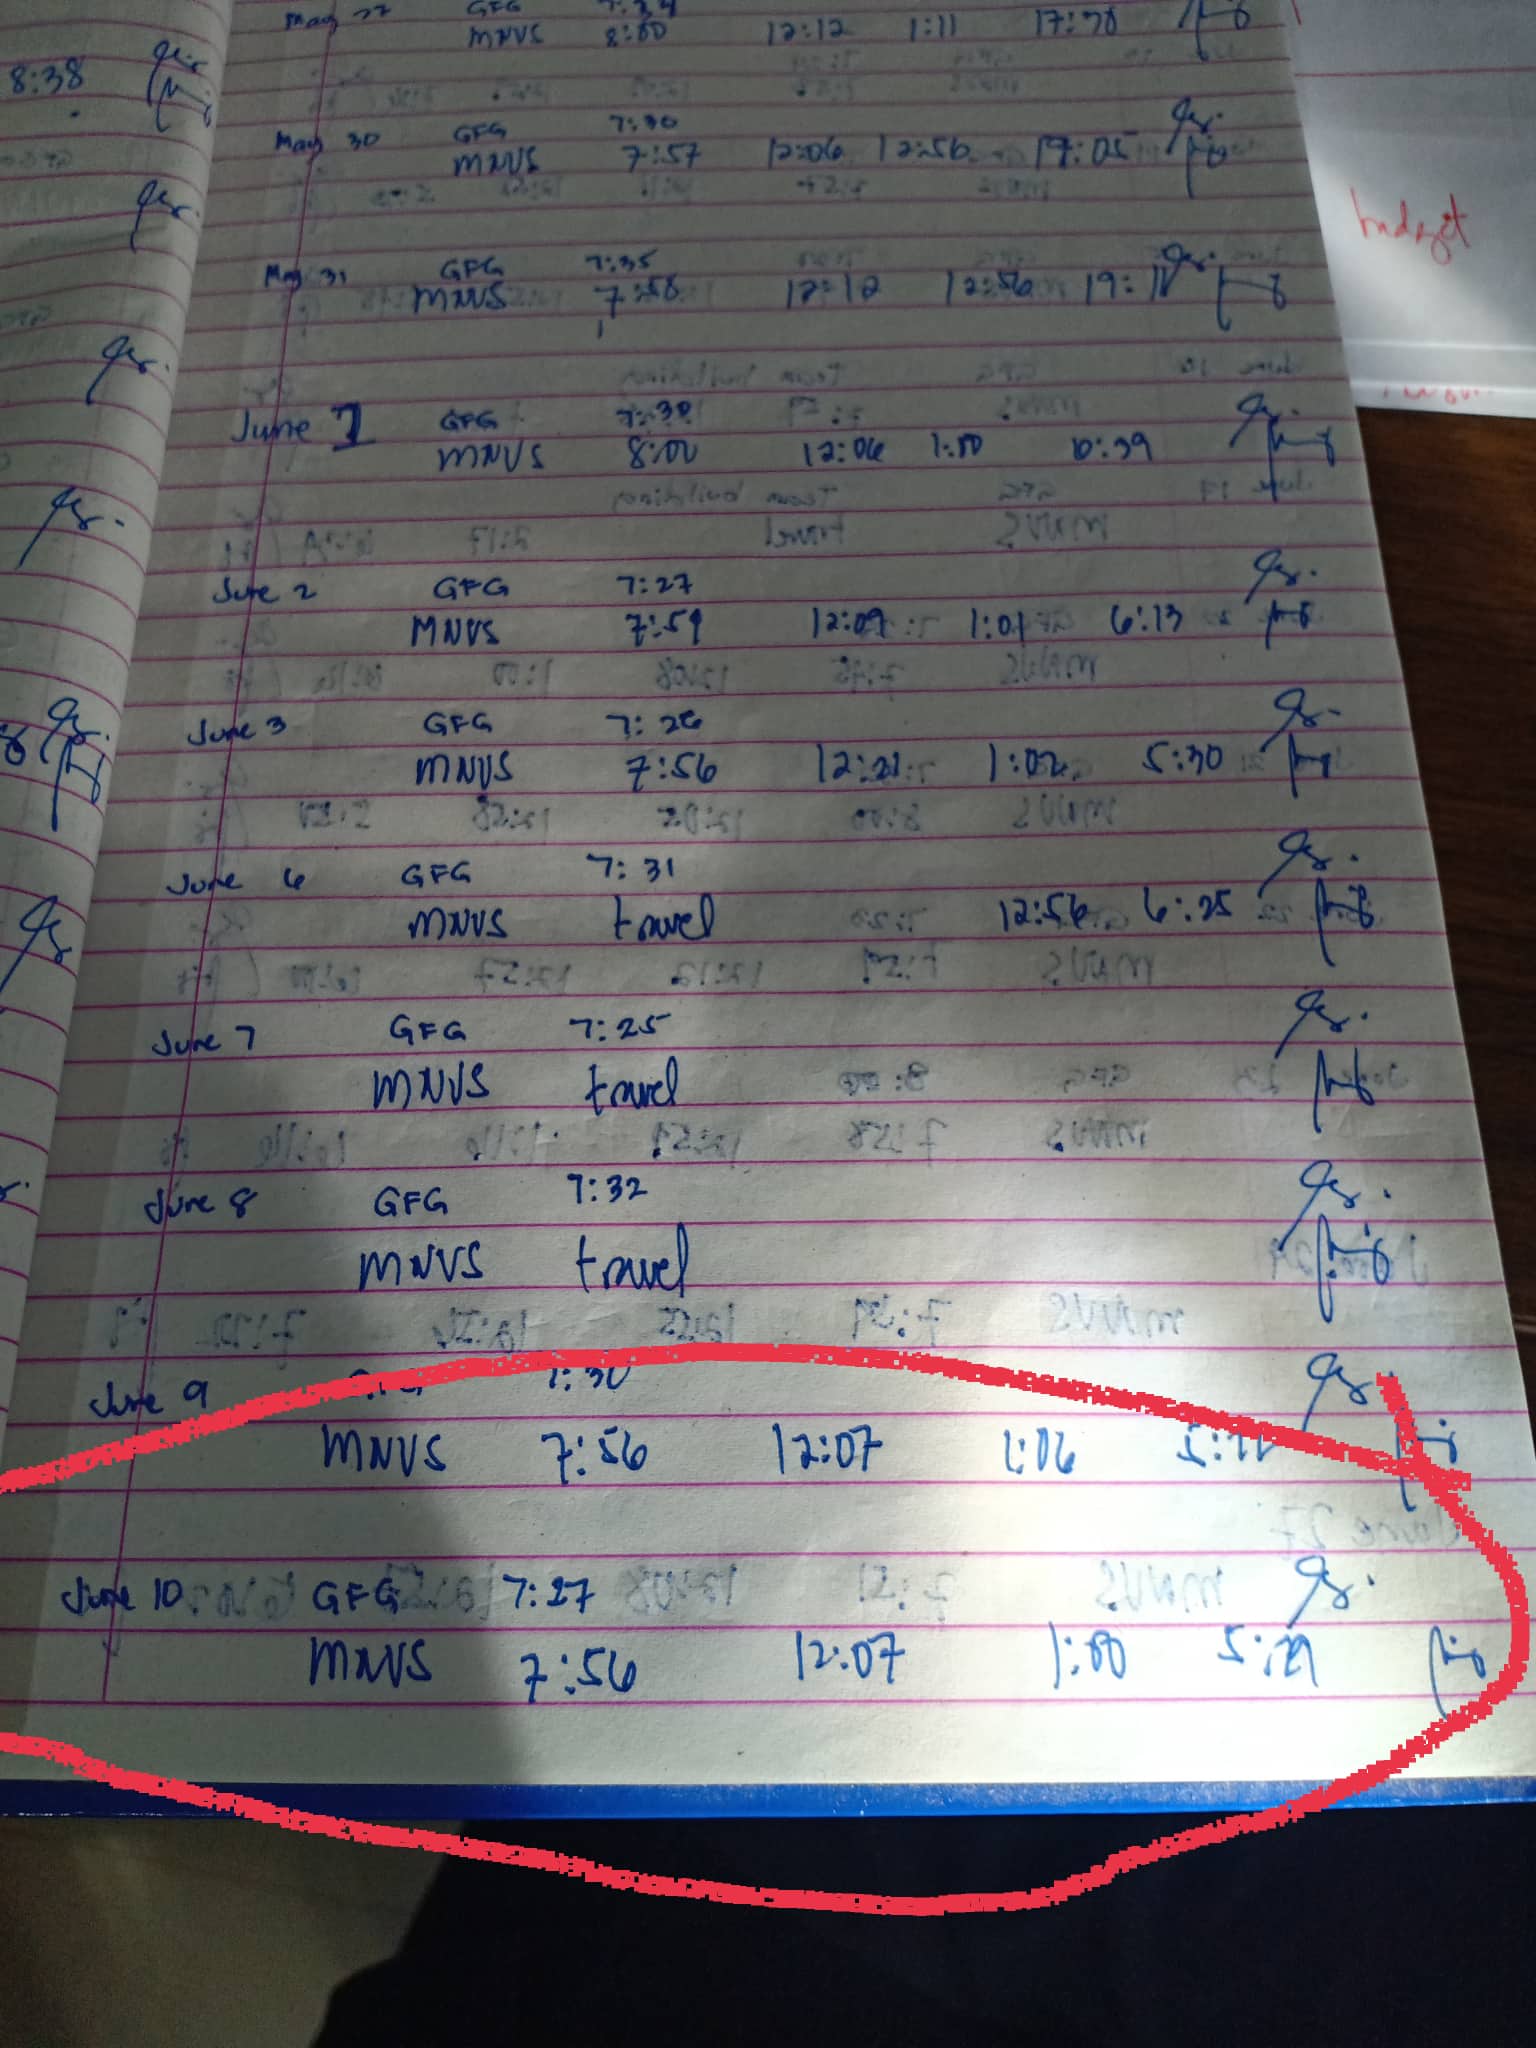 8:38
May 27 GFG
MNVS 8:00 12:12 1:11
May 30 GFG 7:30
MNVS 7:57 12:06 12:56 17:05
May 31 GFG 7:35
MNVS 7:58 12:12 12:56 19:11
budget
June 1 GFG 7:30
MNVS 8:00 12:06 1:00 6:39
June 2 GFG 7:27
MNVS 7:59 12:09 1:01 6:13
June 3 GFG 7:26
MNVS 7:56 12:21 1:02 5:30
June 6 GFG 7:31
MNVS travel 12:56 6:25
June 7 GFG 7:25
MNVS travel
June 8 GFG 7:32
MNVS travel
June 9 GFG 7:30
MNVS 7:56 12:07 1:06
June 10 GFG 7:27
MNVS 7:56 12:07 1:00 5:29